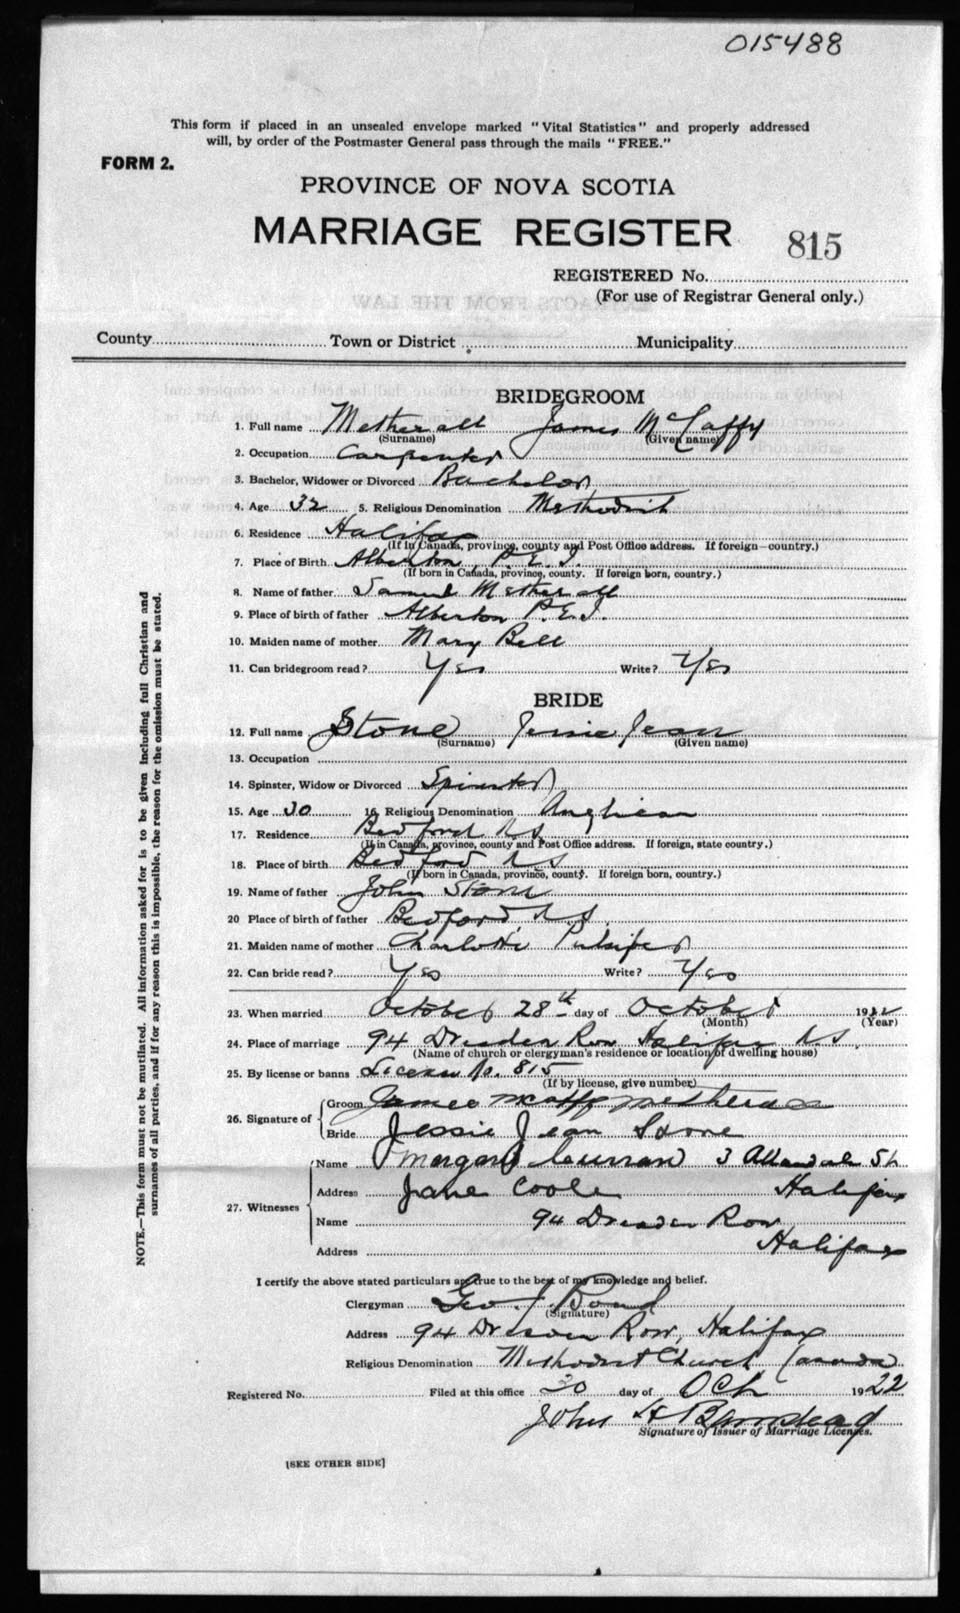 015488
This form if placed in an unsealed envelope marked "Vital Statistics" and properly addressed
will, by order of the Postmaster General pass through the mails "FREE."
FORM 2.
PROVINCE OF NOVA SCOTIA
MARRIAGE REGISTER
815
REGISTERED No.
(For use of Registrar General only.)
County Town or District Municipality
BRIDEGROOM
1. Full name Metherall James McCaffy
(Surname) (Given name)
2. Occupation Carpenter
3. Bachelor, Widower or Divorced Bachelor
4. Age 32 5. Religious Denomination Methodist
6. Residence Halifax
(If in Canada, province, county and Post Office address. If foreign—country.)
7. Place of Birth Alberton, P.E.I.
(If born in Canada, province, county. If foreign born, country.)
8. Name of father Samuel Metherall
9. Place of birth of father Alberton P.E.I.
10. Maiden name of mother Mary Bell
11. Can bridegroom read? Yes Write? Yes
BRIDE
12. Full name Stone Jessie Jean
(Surname) (Given name)
13. Occupation
14. Spinster, Widow or Divorced Spinster
15. Age 30 16. Religious Denomination Anglican
17. Residence Bedford NS
(If in Canada, province, county and Post Office address. If foreign, state country.)
18. Place of birth Bedford NS
(If born in Canada, province, county. If foreign born, country.)
19. Name of father John Stone
20 Place of birth of father Bedford, N.S.
21. Maiden name of mother Charlotte Pulsifer
22. Can bride read? Yes Write? Yes
23. When married October 28th day of October 1922
(Month) (Year)
24. Place of marriage 94 Dresden Row Halifax NS.
(Name of church or clergyman's residence or location of dwelling house)
25. By license or banns License No. 815
(If by license, give number)
26. Signature of Groom James McCaffy Metherall
Bride Jessie Jean Stone
27. Witnesses Name Margaret Curran 3 Allandale St
Address Jane Coole Halifax
Name 94 Dresden Row
Address Halifax
I certify the above stated particulars are true to the best of my knowledge and belief.
Clergyman Geo. J. Bond
(Signature)
Address 94 Dresden Row, Halifax
Religious Denomination Methodist Church, Canada
Registered No. Filed at this office 30 day of Oct 1922
John H Barnstead
Signature of Issuer of Marriage Licenses.
[SEE OTHER SIDE]
NOTE.—This form must not be mutilated. All information asked for is to be given including full Christian and
surnames of all parties, and if for any reason this is impossible, the reason for the omission must be stated.